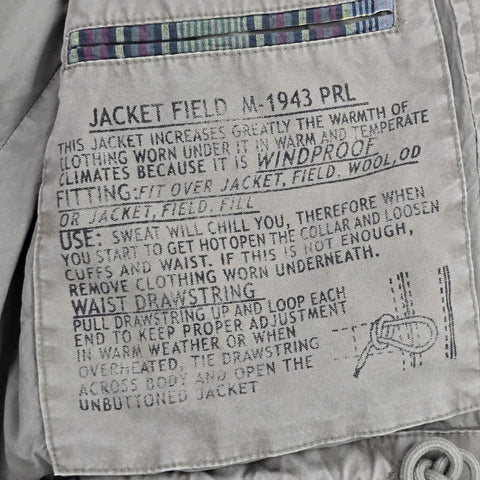 JACKET FIELD M-1943 PRL
THIS JACKET INCREASES GREATLY THE WARMTH OF
CLOTHING WORN UNDER IT IN WARM AND TEMPERATE
CLIMATES BECAUSE IT IS WINDPROOF
FITTING:FIT OVER JACKET, FIELD, WOOL, OD
OR JACKET, FIELD, FILL
USE: SWEAT WILL CHILL YOU, THEREFORE WHEN
YOU START TO GET HOT OPEN THE COLLAR AND LOOSEN
CUFFS AND WAIST. IF THIS IS NOT ENOUGH,
REMOVE CLOTHING WORN UNDERNEATH.
WAIST DRAWSTRING
PULL DRAWSTRING UP AND LOOP EACH
END TO KEEP PROPER ADJUSTMENT
IN WARM WEATHER OR WHEN
OVERHEATED, TIE DRAWSTRING
ACROSS BODY AND OPEN THE
UNBUTTONED JACKET